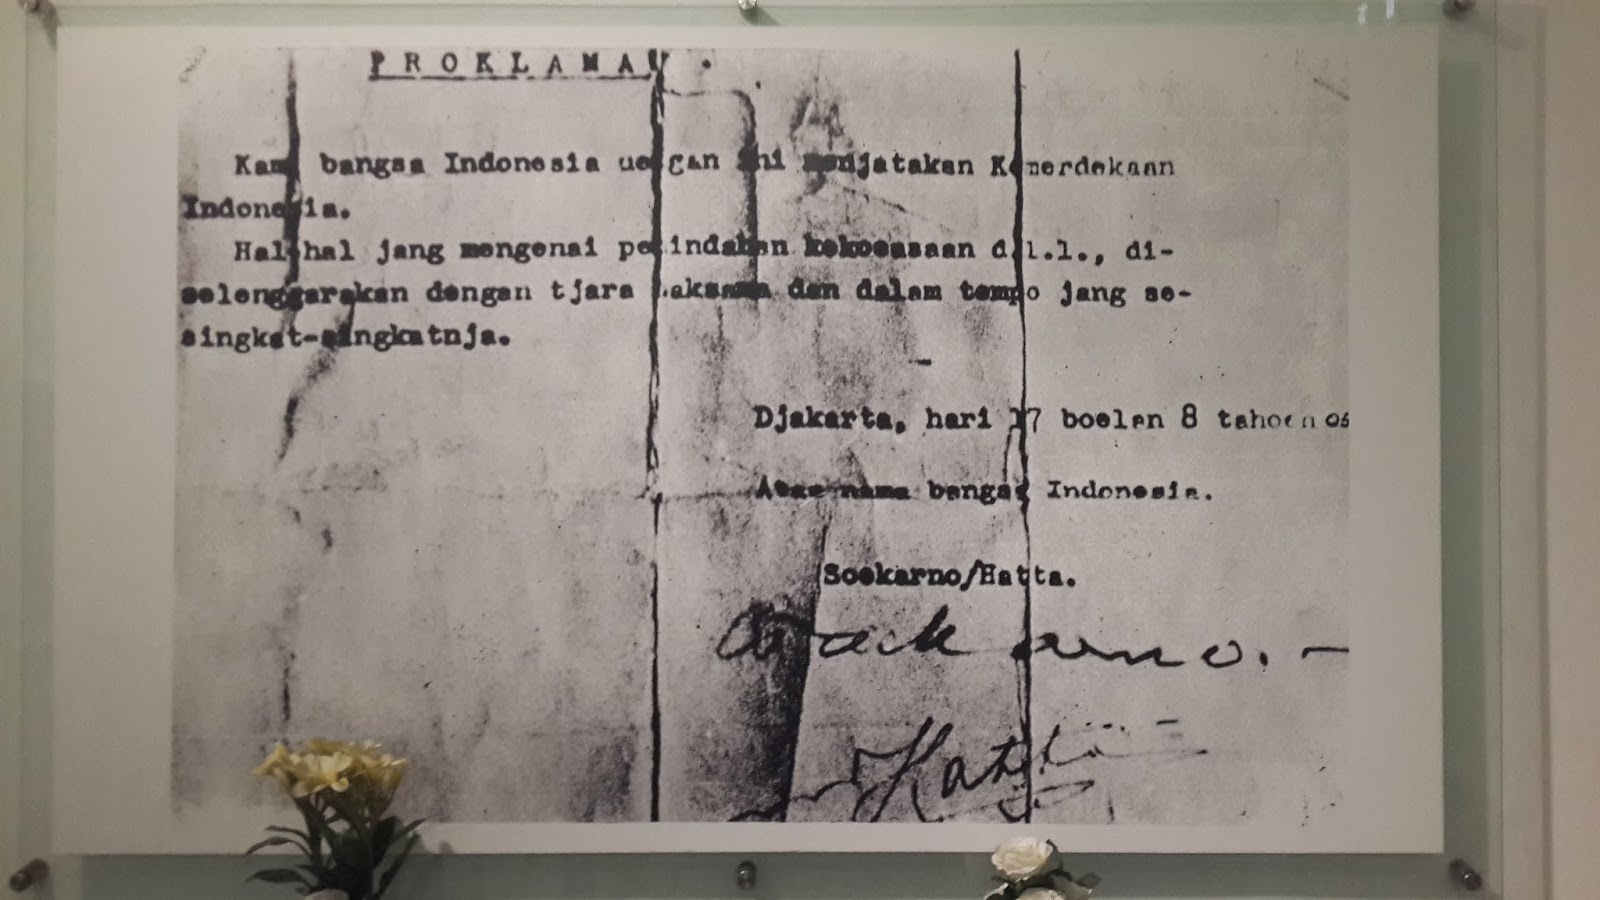 PROKLAMASI.
Kami bangsa Indonesia dengan ini menjatakan Kemerdekaan
Indonesia.
Hal-hal jang mengenai pemindahan kekoeasaan d.l.l., di-
selenggarakan dengan tjara saksama dan dalam tempo jang se-
singkat-singkatnja.
Djakarta, hari 17 boelan 8 tahoen 05
Atas nama bangsa Indonesia.
Soekarno/Hatta.
Soekarno.-
Hatta